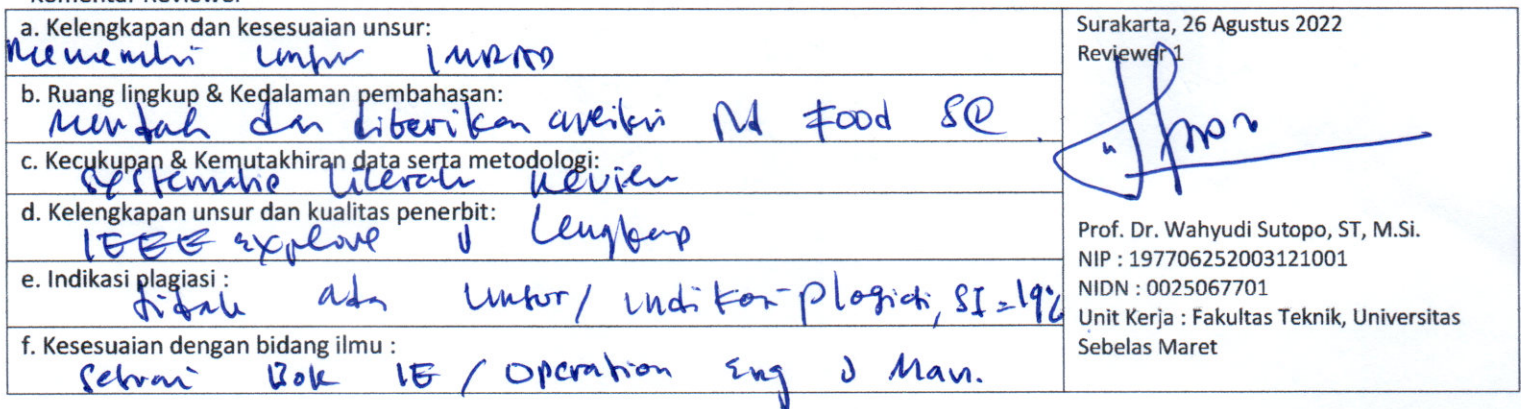 a. Kelengkapan dan kesesuaian unsur:
Memenuhi unsur IMRAD
b. Ruang lingkup & Kedalaman pembahasan:
dan diberikan Food SC
c. Kecukupan & Kemutakhiran data serta metodologi:
Systematic Literatur Review
d. Kelengkapan unsur dan kualitas penerbit:
IEEE explore & Lengkap
e. Indikasi plagiasi :
tidak ada unsur/ indikasi plagiasi, SI=19%
f. Kesesuaian dengan bidang ilmu :
Sesuai Bok IE / Operation Eng & Man.
Surakarta, 26 Agustus 2022
Reviewer 1
Prof. Dr. Wahyudi Sutopo, ST, M.Si.
NIP : 197706252003121001
NIDN : 0025067701
Unit Kerja : Fakultas Teknik, Universitas
Sebelas Maret